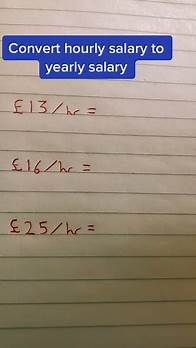 Convert hourly salary to
yearly salary
£13/hr =
£16/hr =
£25/hr =